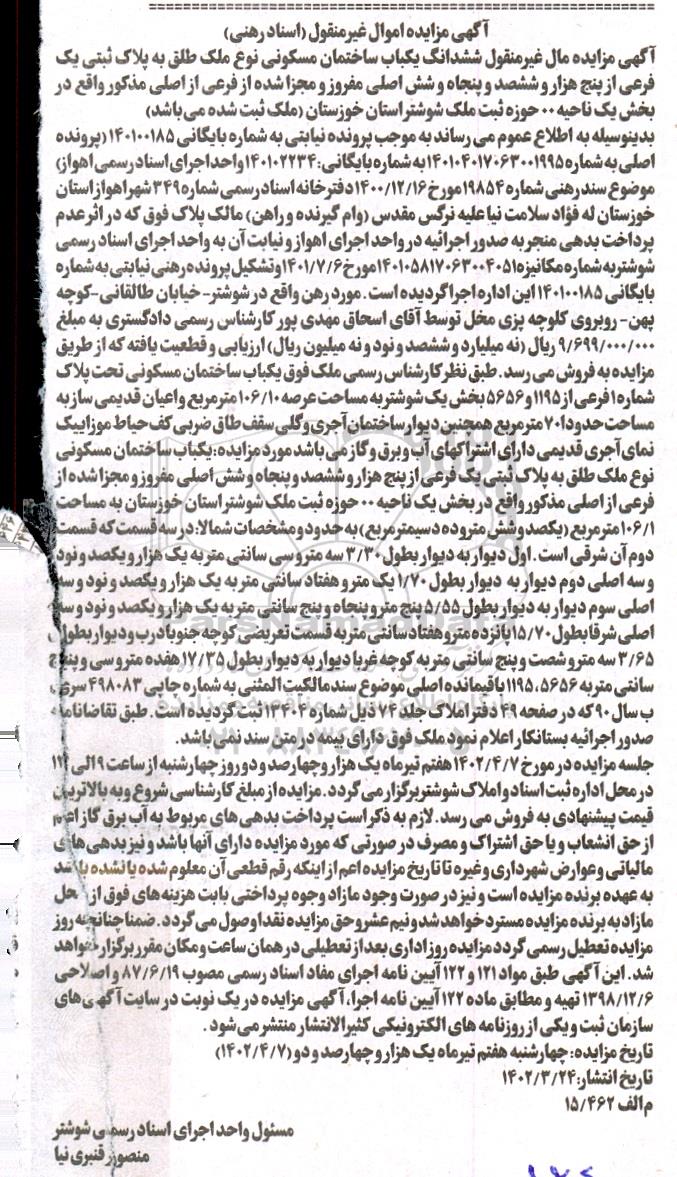 آگهی مزایده اموال غیرمنقول (اسناد رهنی)
آگهی مزایده مال غیرمنقول ششدانگ یکباب ساختمان مسکونی نوع ملک طلق به پلاک ثبتی یک
فرعی از پنج هزار و ششصد و پنجاه و شش اصلی مفروز و مجزا شده از فرعی از اصلی مذکور واقع در
بخش یک ناحیه ۰۰ حوزه ثبت ملک شوشتر استان خوزستان (ملک ثبت شده می باشد)
بدینوسیله به اطلاع عموم می رساند به موجب پرونده نیابتی به شماره بایگانی ۱۴۰۱۰۰۱۸۵ (پرونده
اصلی به شماره ۱۴۰۱۰۴۰۱۷۰۶۳۰۰۱۹۹۵ به شماره بایگانی: ۱۴۰۱۰۲۲۳۴ واحد اجرای اسناد رسمی اهواز)
موضوع سند رهنی شماره ۱۹۸۵۴ مورخ ۱۴۰۰/۱۲/۱۶ دفترخانه اسناد رسمی شماره ۳۴۹ شهر اهواز استان
خوزستان له فؤاد سلامت نیا علیه نرگس مقدس (وام گیرنده و راهن) مالک پلاک فوق که در اثر عدم
پرداخت بدهی منجر به صدور اجرائیه در واحد اجرای اهواز و نیابت آن به واحد اجرای اسناد رسمی
شوشتر به شماره مکانیزه ۱۴۰۱۰۵۸۱۷۰۶۳۰۰۴۰۵۱ مورخ ۱۴۰۱/۷/۶ و تشکیل پرونده رهنی نیابتی به شماره
بایگانی ۱۴۰۱۰۰۱۸۵ این اداره اجرا گردیده است. مورد رهن واقع در شوشتر- خیابان طالقانی-کوچه
پهن- روبروی کلوچه پزی مخل توسط آقای اسحاق مهدی پور کارشناس رسمی دادگستری به مبلغ
۹/۶۹۹/۰۰۰/۰۰۰ ریال (نه میلیارد و ششصد و نود و نه میلیون ریال) ارزیابی و قطعیت یافته که از طریق
مزایده به فروش می رسد. طبق نظر کارشناس رسمی ملک فوق یکباب ساختمان مسکونی تحت پلاک
شماره ۱ فرعی از ۱۱۹۵ و ۵۶۵۶ بخش یک شوشتر به مساحت عرصه ۱۰۶/۱۰ مترمربع و اعیان قدیمی ساز به
مساحت حدودا ۷۰ مترمربع همچنین دیوار ساختمان آجری و گلی سقف طاق ضربی کف حیاط موزاییک
نمای آجری قدیمی دارای اشتراکهای آب و برق و گاز می باشد مورد مزایده: یکباب ساختمان مسکونی
نوع ملک طلق به پلاک ثبتی یک فرعی از پنج هزار و ششصد و پنجاه و شش اصلی مفروز و مجزا شده از
فرعی از اصلی مذکور واقع در بخش یک ناحیه ۰۰ حوزه ثبت ملک شوشتر استان خوزستان به مساحت
۱۰۶/۱ مترمربع (یکصد و شش متر و ده دسیمترمربع) به حدود و مشخصات شمالا: در سه قسمت که قسمت
دوم آن شرقی است. اول دیوار به دیوار بطول ۳/۳۰ سه متر و سی سانتی متر به یک هزار و یکصد و نود
و سه اصلی دوم دیوار به دیوار بطول ۱/۷۰ یک متر و هفتاد سانتی متر به یک هزار و یکصد و نود و سه
اصلی سوم دیوار به دیوار بطول ۵/۵۵ پنج متر و پنجاه و پنج سانتی متر به یک هزار و یکصد و نود و سه
اصلی شرقا بطول ۱۵/۷۰ پانزده متر و هفتاد سانتی متر به قسمت تعریضی کوچه جنوبا درب و دیوار بطول
۳/۶۵ سه متر و شصت و پنج سانتی متر به کوچه غربا دیوار به دیوار بطول ۱۷/۳۵ هفده متر و سی و پنج
سانتی متر به ۵۶۵۶، ۱۱۹۵ باقیمانده اصلی موضوع سند مالکیت المثنی به شماره چاپی ۴۹۸۰۸۳ سری
ب سال ۹۰ که در صفحه ۴۹ دفتر املاک جلد ۷۴ ذیل شماره ۱۳۴۰۴ ثبت گردیده است. طبق تقاضانامه
صدور اجرائیه بستانکار اعلام نمود ملک فوق دارای بیمه در متن سند نمی باشد.
جلسه مزایده در مورخ ۱۴۰۲/۴/۷ هفتم تیرماه یک هزار و چهارصد و دو روز چهارشنبه از ساعت ۹ الی ۱۲
در محل اداره ثبت اسناد و املاک شوشتر برگزار می گردد. مزایده از مبلغ کارشناسی شروع و به بالاترین
قیمت پیشنهادی به فروش می رسد. لازم به ذکر است پرداخت بدهی های مربوط به آب برق گاز اعم
از حق انشعاب و یا حق اشتراک و مصرف در صورتی که مورد مزایده دارای آنها باشد و نیز بدهی های
مالیاتی و عوارض شهرداری و غیره تا تاریخ مزایده اعم از اینکه رقم قطعی آن معلوم شده یا نشده باشد
به عهده برنده مزایده است و نیز در صورت وجود مازاد وجوه پرداختی بابت هزینه های فوق از محل
مازاد به برنده مزایده مسترد خواهد شد و نیم عشر و حق مزایده نقدا وصول می گردد. ضمنا چنانچه روز
مزایده تعطیل رسمی گردد مزایده روز اداری بعد از تعطیلی در همان ساعت و مکان مقرر برگزار خواهد
شد. این آگهی طبق مواد ۱۲۱ و ۱۲۲ آیین نامه اجرای مفاد اسناد رسمی مصوب ۸۷/۶/۱۹ و اصلاحی
۱۳۹۸/۱۲/۶ تهیه و مطابق ماده ۱۲۲ آیین نامه اجرا، آگهی مزایده در یک نوبت در سایت آگهی های
سازمان ثبت و یکی از روزنامه های الکترونیکی کثیرالانتشار منتشر می شود.
تاریخ مزایده: چهارشنبه هفتم تیرماه یک هزار و چهارصد و دو (۱۴۰۲/۴/۷)
تاریخ انتشار: ۱۴۰۲/۳/۲۴
م الف ۱۵/۴۶۲
مسئول واحد اجرای اسناد رسمی شوشتر
منصور قنبری نیا